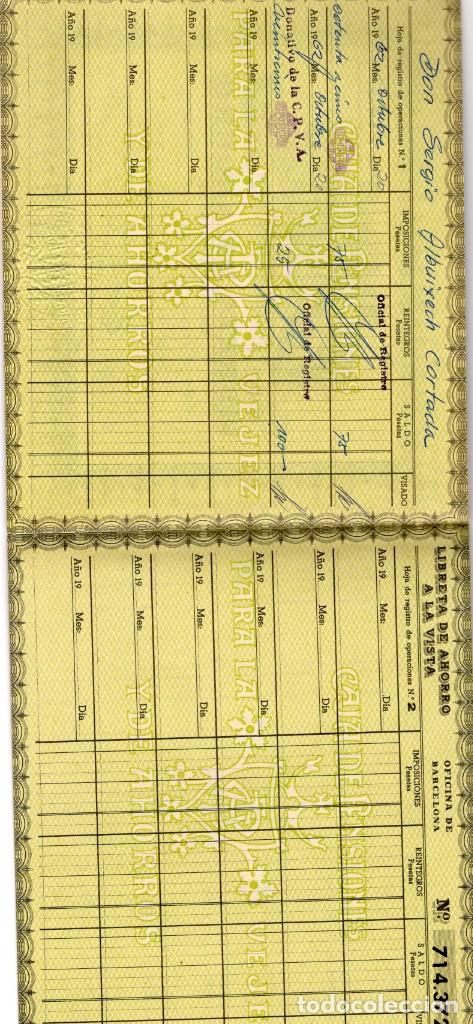 Don Sergio Albuixech Cortada
Hoja de registro de operaciones N.º 1
IMPOSICIONES
Pesetas
REINTEGROS
Pesetas
SALDO
Pesetas
VISADO
Año 1962 Mes: Octubre Día 20
Oficial de Registro
Setenta y cinco 75 75
Año 1962 Mes: Octubre Día 20
Donativo de la C. P. V. A.
Oficial de Registro
Veinticinco 25 100
Año 19 Mes: Día
Año 19 Mes: Día
Año 19 Mes: Día
Año 19 Mes: Día
CAJA DE PENSIONES
PARA LA VEJEZ
Y DE AHORROS
LIBRETA DE AHORRO
A LA VISTA
OFICINA DE
BARCELONA
Nº 714.3
Hoja de registro de operaciones N.º 2
IMPOSICIONES
Pesetas
REINTEGROS
Pesetas
SALDO
Pesetas
Año 19 Mes: Día
Año 19 Mes: Día
Año 19 Mes: Día
Año 19 Mes: Día
Año 19 Mes: Día
Año 19 Mes: Día
CAJA DE PENSIONES
PARA LA VEJEZ
Y DE AHORROS
todocoleccion